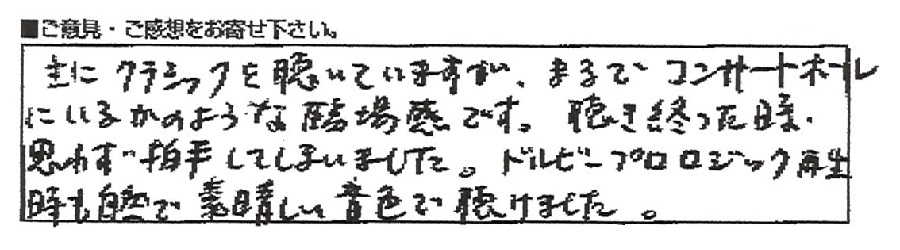 ■ご意見・ご感想をお寄せ下さい。
主にクラシックを聴いていますが、まるでコンサートホール
にいるかのような臨場感です。聴き終った時、
思わず拍手してしまいました。ドルビープロロジック再生
時も自然で素晴しい音色で聴けました。